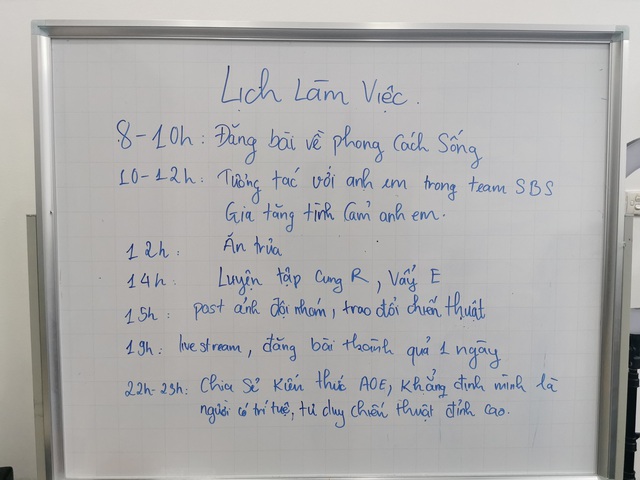 Lịch Làm Việc.
8-10h: Đăng bài về phong Cách Sống
10-12h: Tương tác với anh em trong team SBS
Gia tăng tình Cảm anh em.
12h: Ăn trưa
14h: Luyện tập Cung R, Vẩy E
15h: post ảnh đội nhóm, trao đổi chiến thuật
19h: live stream, đăng bài thành quả 1 ngày
22h-23h: Chia Sẻ Kiến thức AOE, Khẳng định mình là
người có trí tuệ, tư duy chiến thuật đỉnh cao.